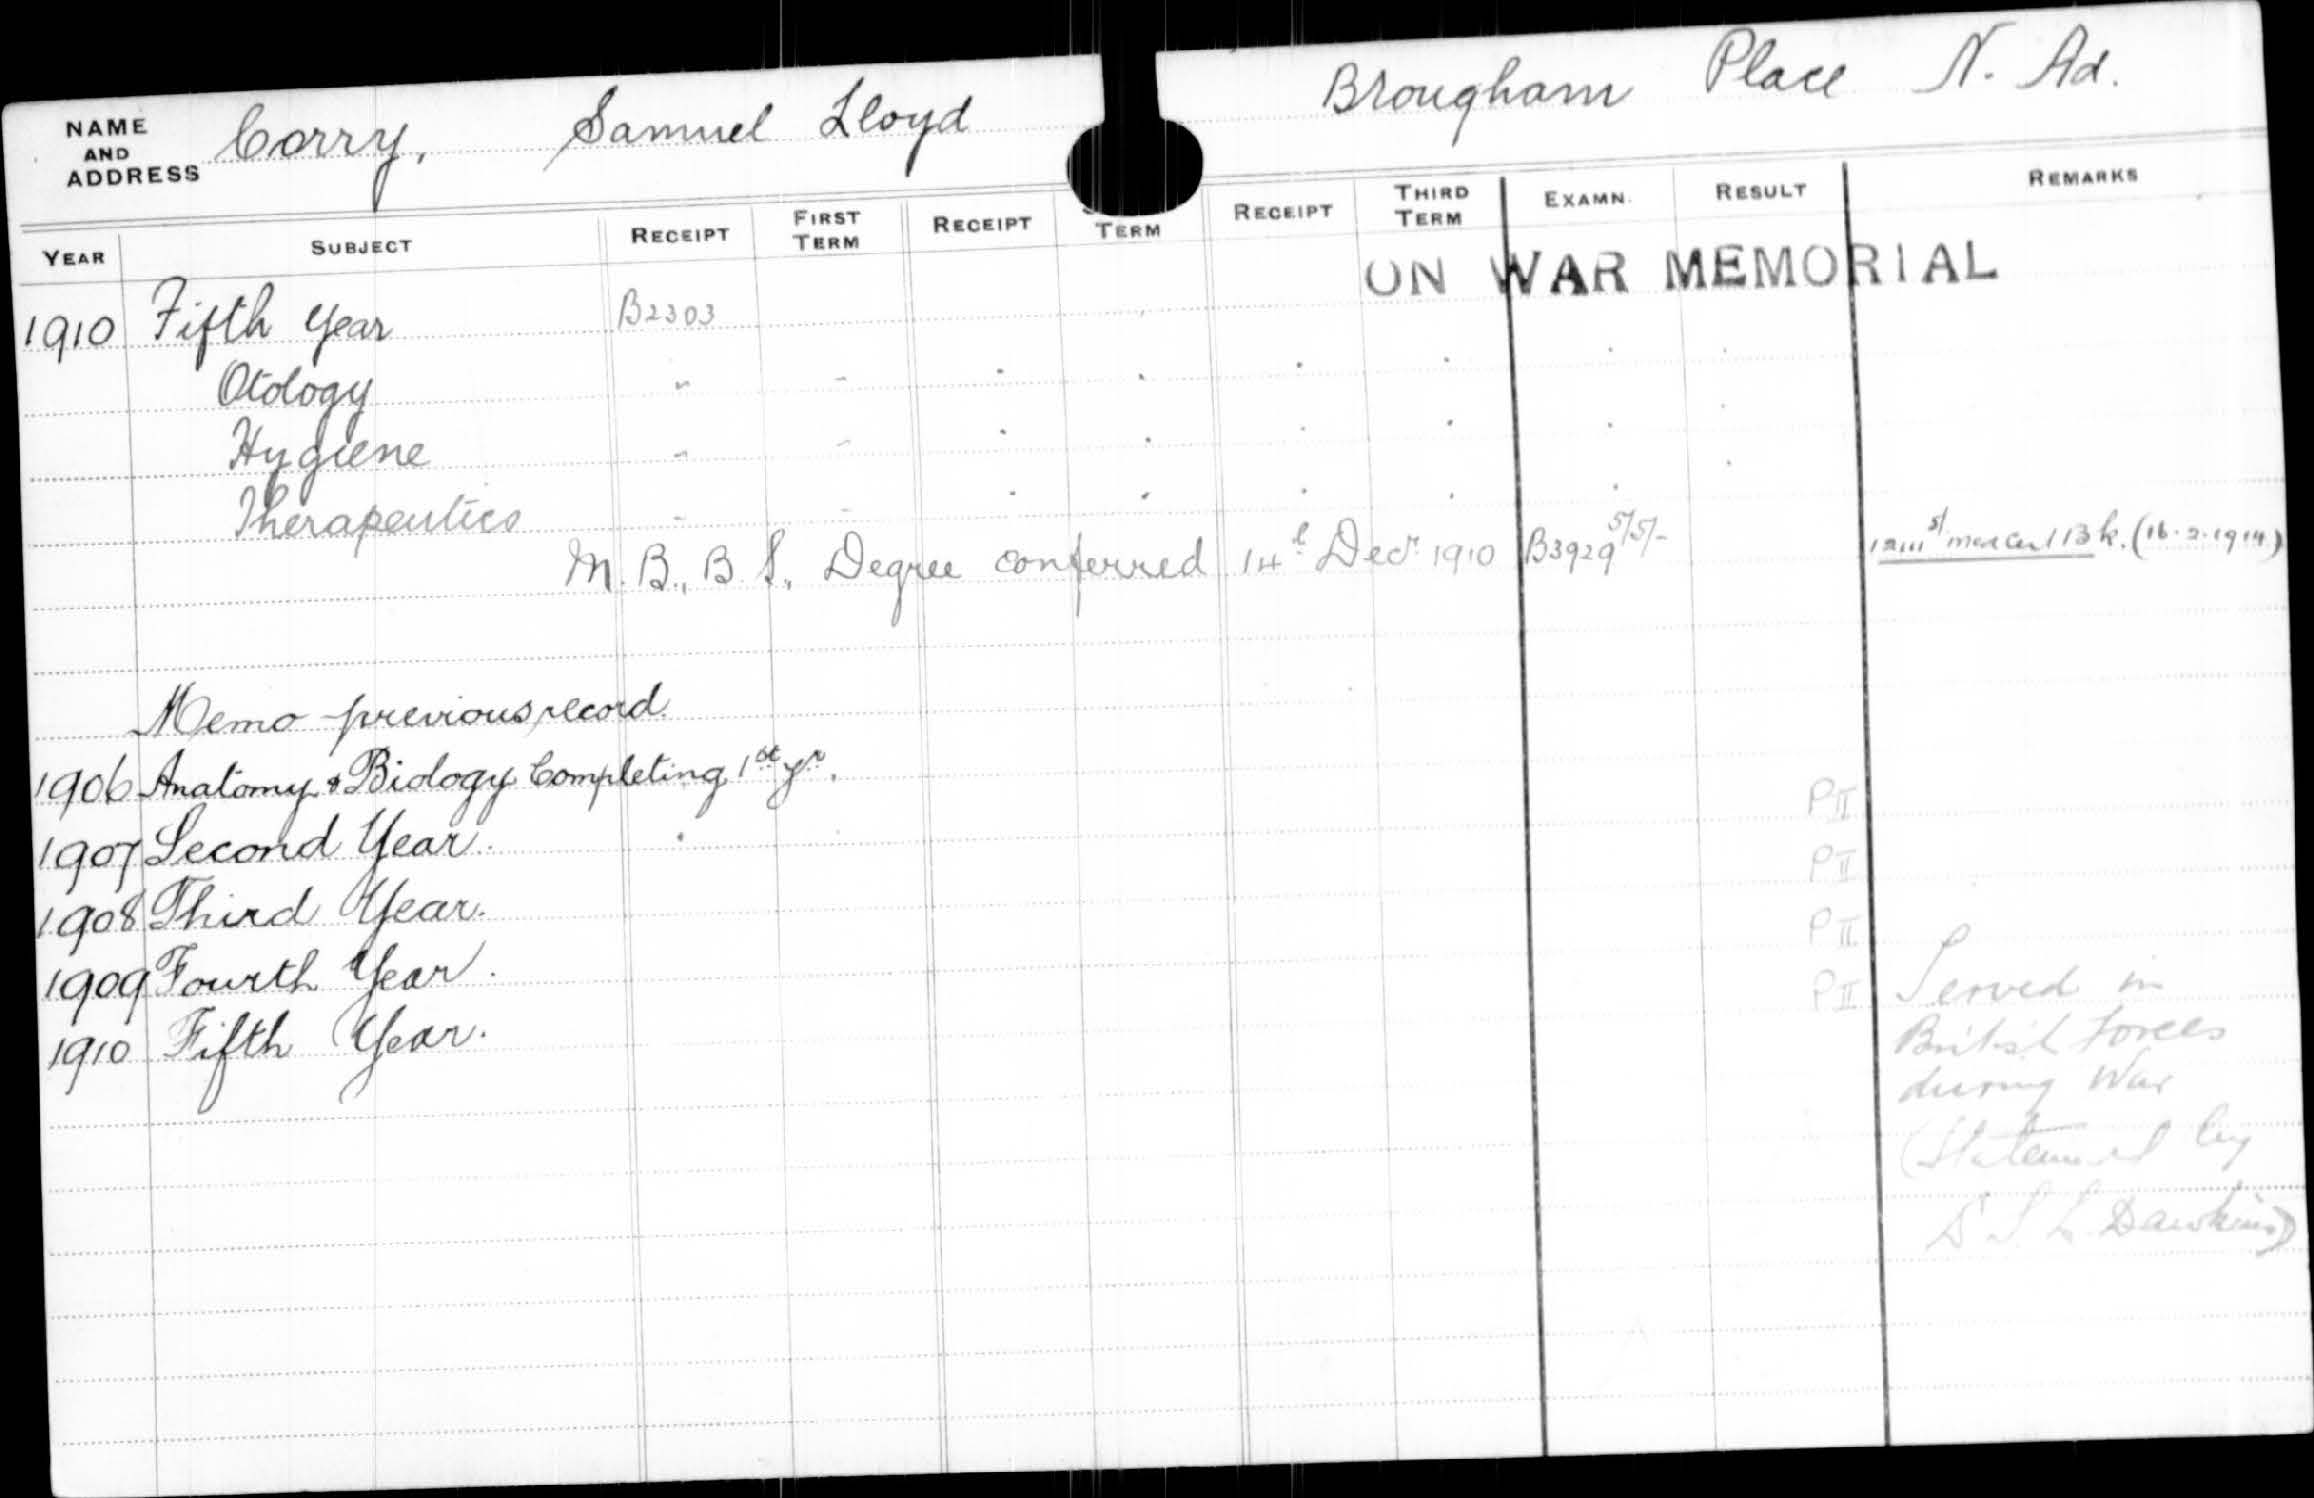 NAME AND ADDRESS Corry, Samuel Lloyd Brougham Place N. Ad.
YEAR SUBJECT RECEIPT FIRST TERM RECEIPT TERM RECEIPT THIRD TERM EXAMN. RESULT REMARKS
ON WAR MEMORIAL
1910 Fifth Year B2303
Otology
Hygiene
Therapeutics
M.B., B.S. Degree conferred 14th Decr 1910 B3929 5/5/- Bk. (16.2.1914)
Memo previous record.
1906 Anatomy & Biology Completing 1st yr. PII
1907 Second Year. PII
1908 Third Year. PII
1909 Fourth Year. PII
1910 Fifth Year.
Served in
British Forces
during War
(Statement by
S L Dawkins)